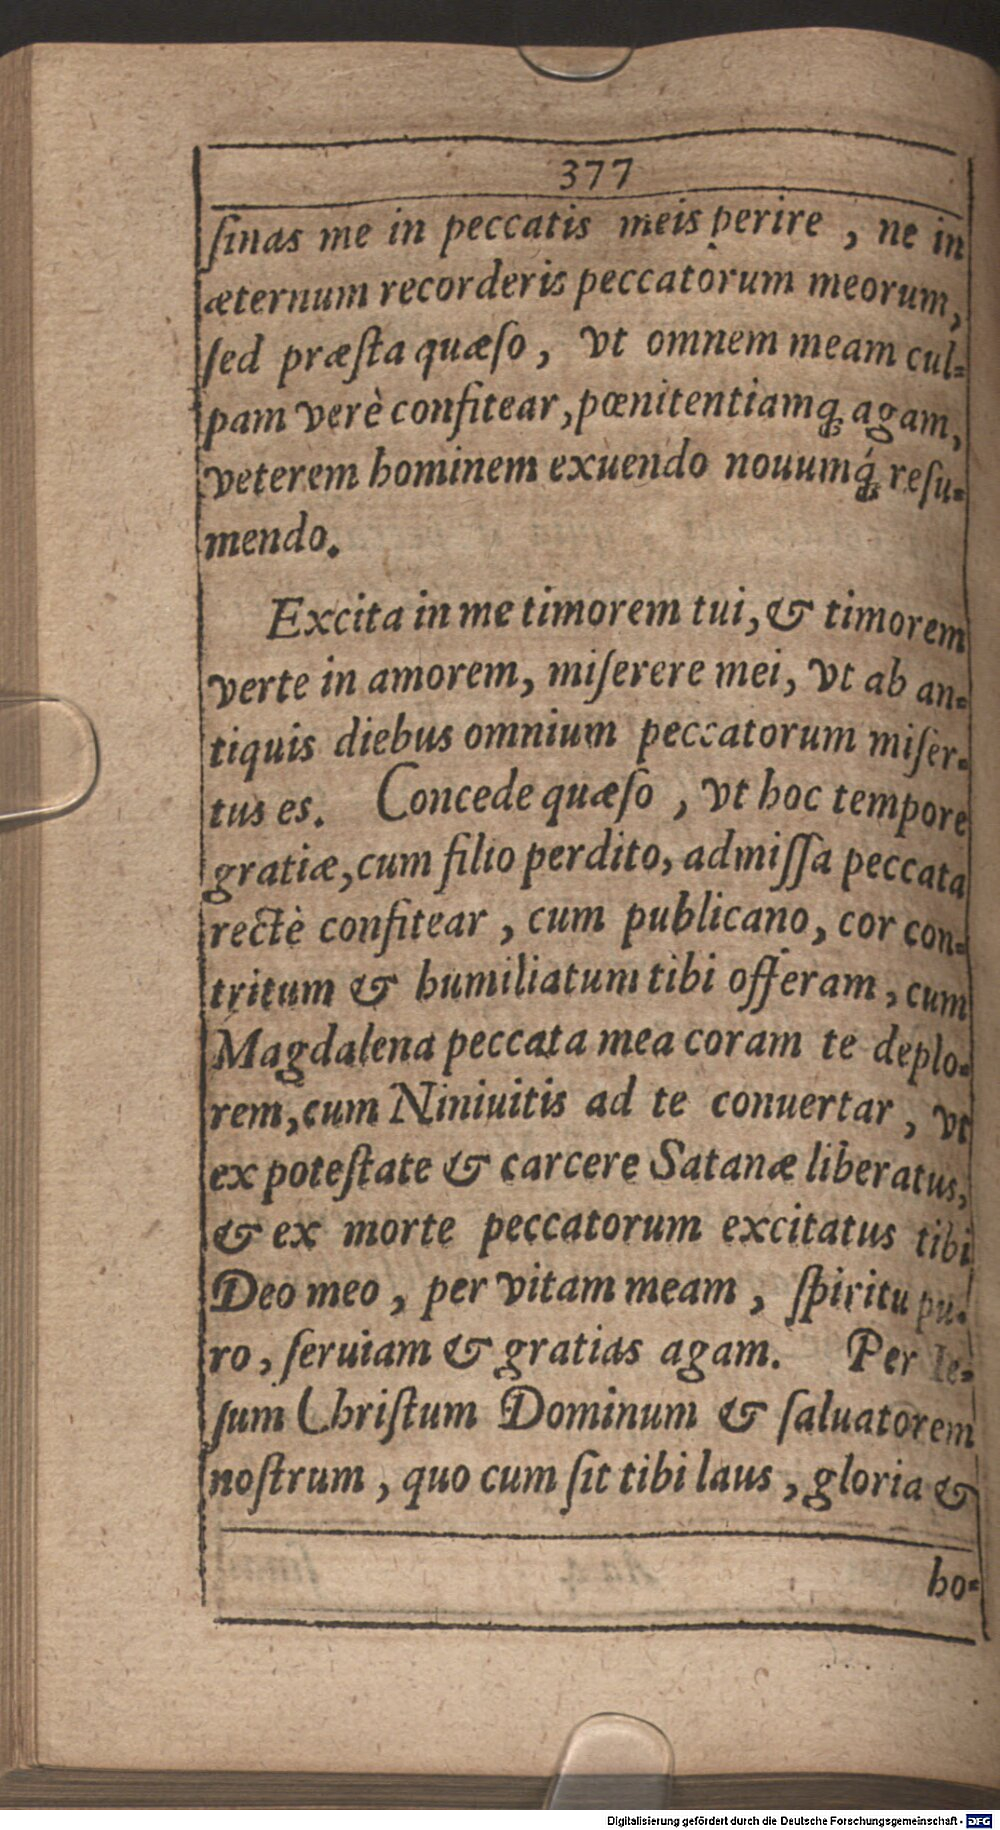 377
ſinas me in peccatis meis perire , ne in
æternum recorderis peccatorum meorum,
ſed præſta quæſo , vt omnem meam cul-
pam verè confitear, pœnitentiamq; agam,
veterem hominem exuendo nouumq́; reſu-
mendo.
Excita in me timorem tui, & timorem
verte in amorem, miſerere mei, vt ab an-
tiquis diebus omnium peccatorum miſer-
tus es. Concede quæſo , vt hoc tempore
gratiæ, cum filio perdito, admiſſa peccata
rectè confitear , cum publicano, cor con-
tritum & humiliatum tibi offeram , cum
Magdalena peccata mea coram te deplo-
rem, cum Niniuitis ad te conuertar , vt
ex poteſtate & carcere Satanæ liberatus,
& ex morte peccatorum excitatus tibi
Deo meo , per vitam meam , ſpiritu pu-
ro , ſeruiam & gratias agam. Per Ie-
ſum Chriſtum Dominum & ſaluatorem
noſtrum , quo cum ſit tibi laus , gloria &
ho-
Digitalisierung gefördert durch die Deutsche Forschungsgemeinschaft - DFG